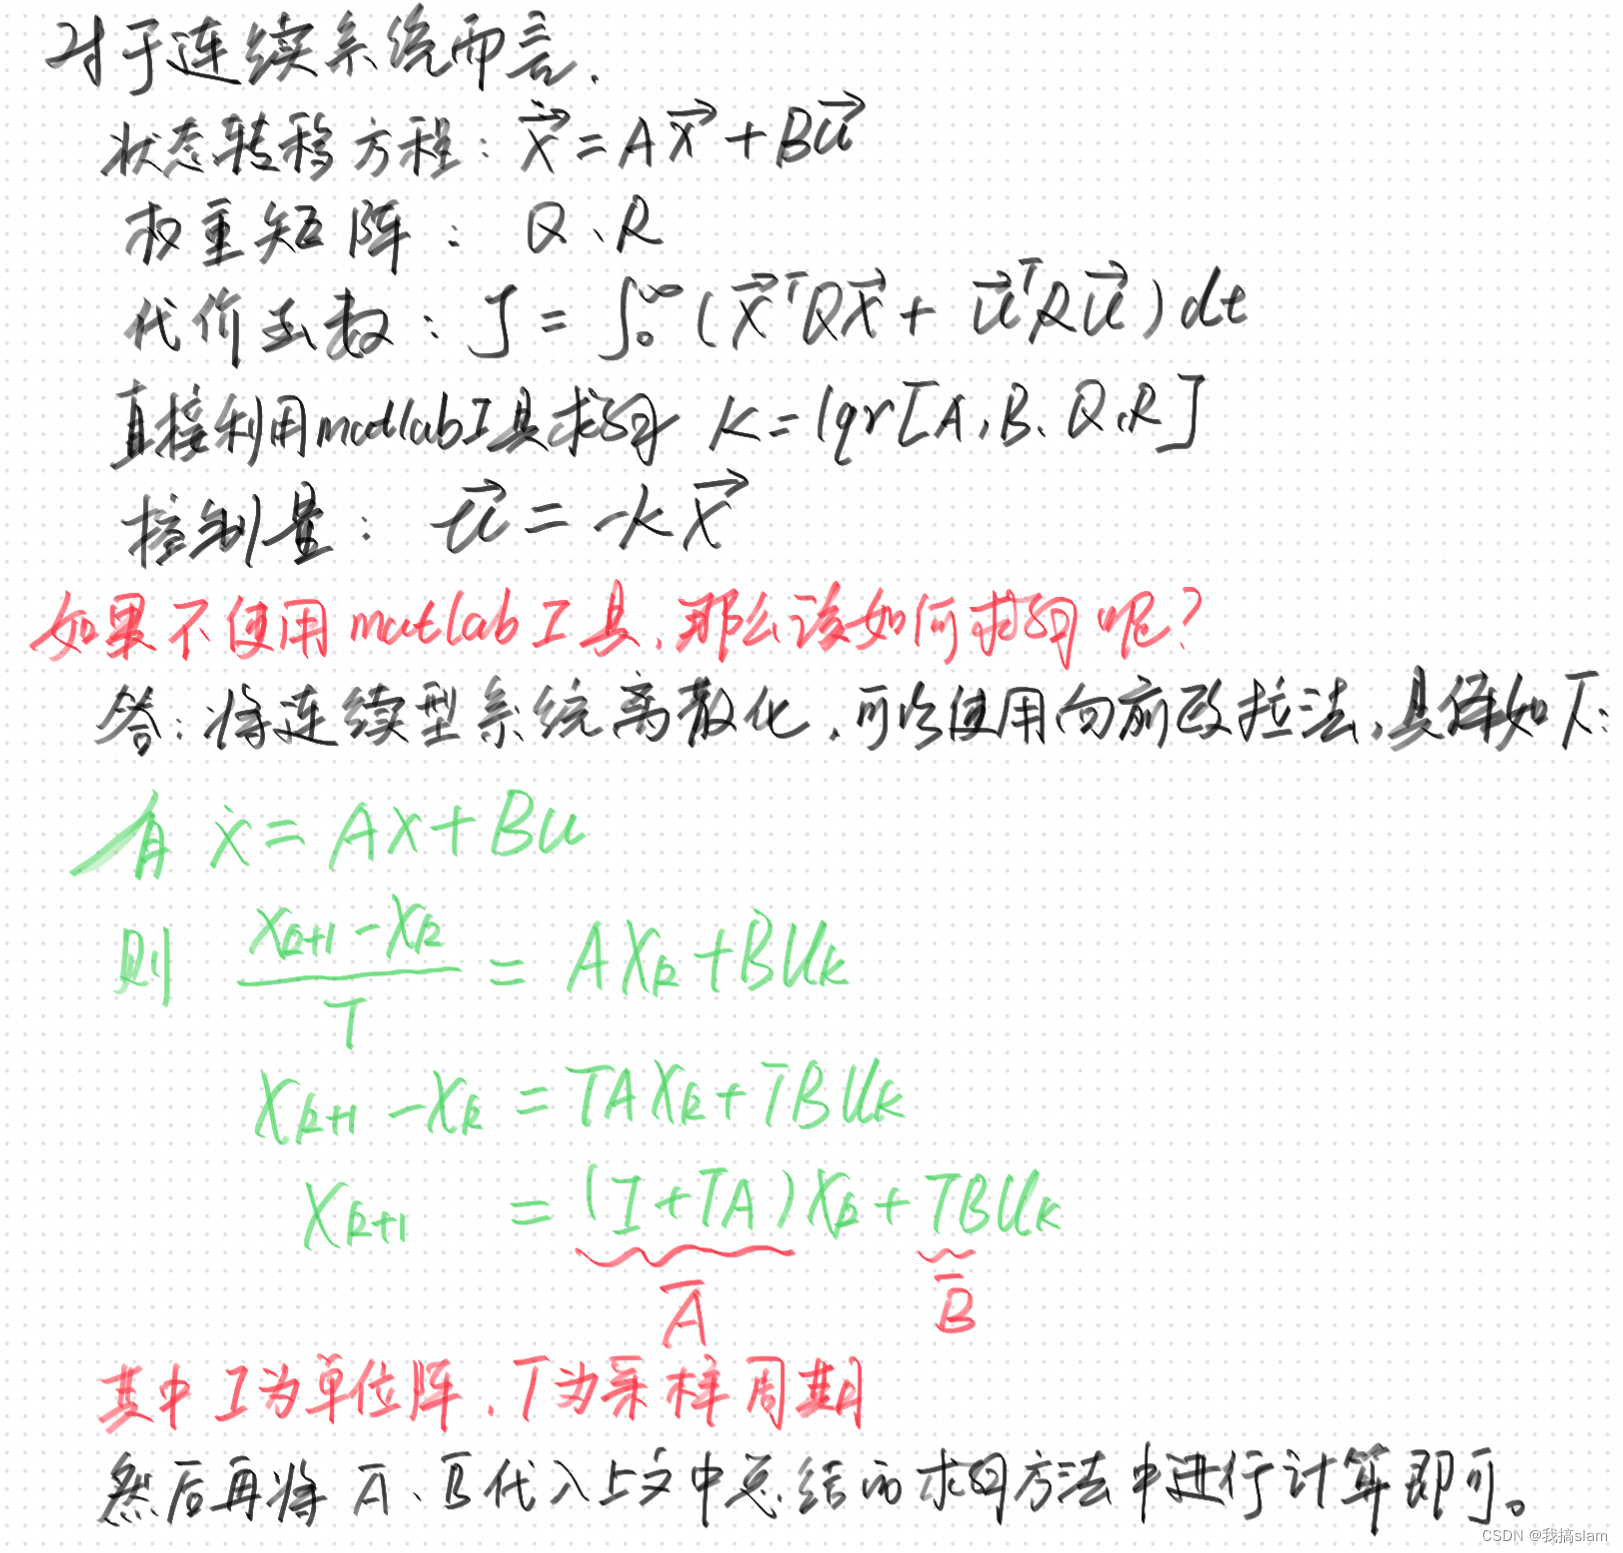 对于连续系统而言.
状态转移方程: ẋ⃗ = Ax⃗ + Bu⃗
权重矩阵: Q、R
代价函数: J = ∫₀^∞ (x⃗ᵀQx⃗ + u⃗ᵀRu⃗) dt
直接利用matlab工具求解 K = lqr[A, B、Q, R]
控制量: u⃗ = -kx⃗
如果不使用matlab工具,那么该如何求解呢?
答:将连续型系统离散化,可以使用向前欧拉法,具体如下:
有 ẋ = Ax + Bu
则 (X_{k+1} - X_k) / T = AX_k + BU_k
X_{k+1} - X_k = TAX_k + TBU_k
X_{k+1} = (I + TA)X_k + TBU_k
A̅ B̅
其中I为单位阵,T为采样周期
然后再将 A̅、B̅代入上文中总结的求解方法中进行计算即可。
CSDN @我搞slam